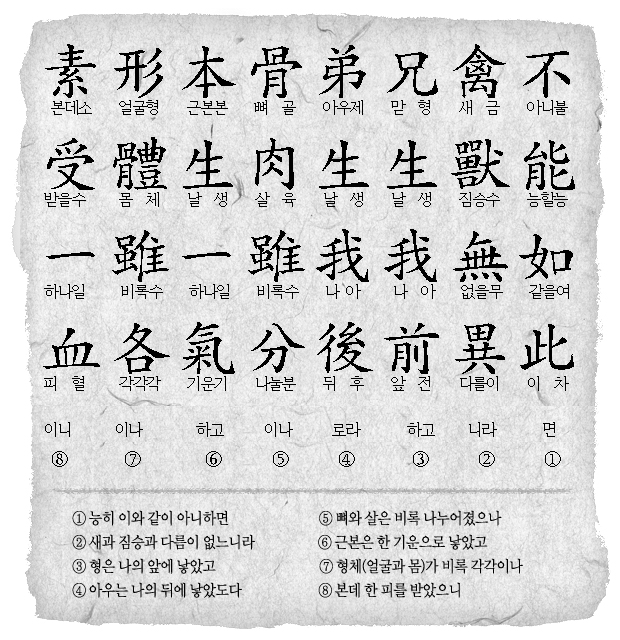 不 아니불 能 능할능 如 같을여 此 이 차 면 ①
禽 새 금 獸 짐승수 無 없을무 異 다를이 니라 ②
兄 맏 형 生 날 생 我 나 아 前 앞 전 하고 ③
弟 아우제 生 날 생 我 나 아 後 뒤 후 로라 ④
骨 뼈 골 肉 살 육 雖 비록수 分 나눌분 이나 ⑤
本 근본본 生 날 생 一 하나일 氣 기운기 하고 ⑥
形 얼굴형 體 몸 체 雖 비록수 各 각각각 이나 ⑦
素 본데소 受 받을수 一 하나일 血 피 혈 이니 ⑧
① 능히 이와 같이 아니하면
② 새과 짐승과 다름이 없느니라
③ 형은 나의 앞에 낳았고
④ 아우는 나의 뒤에 낳았도다
⑤ 뼈와 살은 비록 나누어졌으나
⑥ 근본은 한 기운으로 낳았고
⑦ 형체(얼굴과 몸)가 비록 각각이나
⑧ 본데 한 피를 받았으니